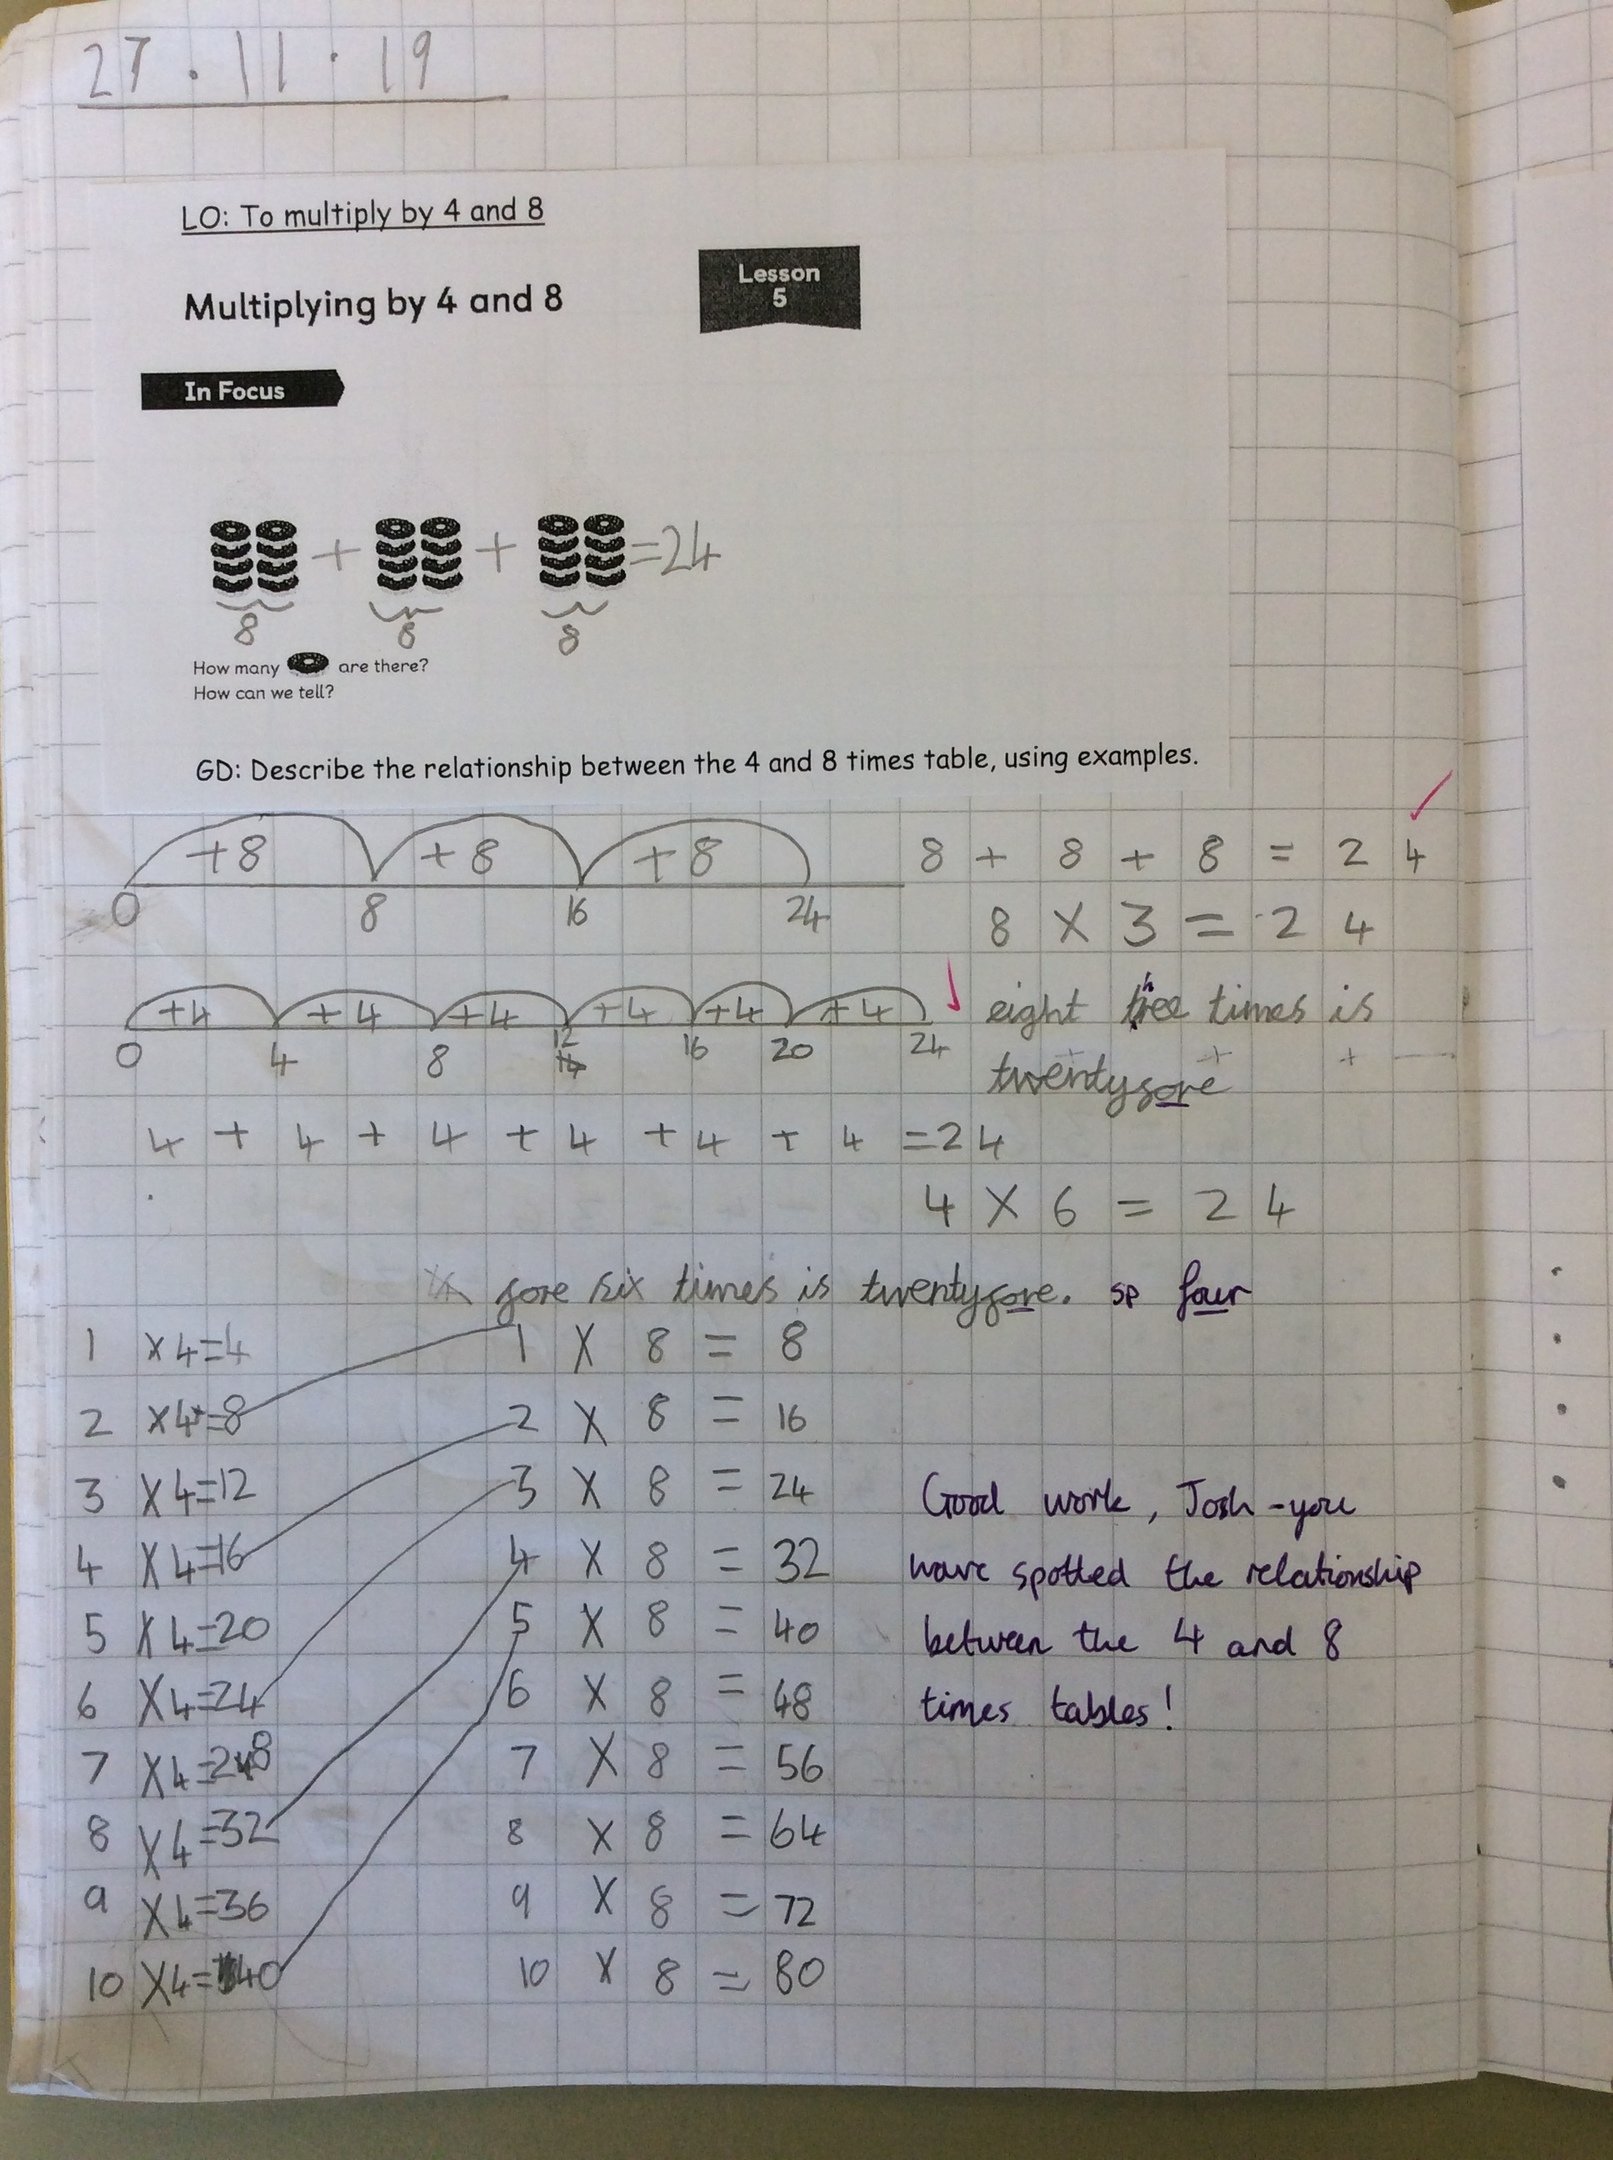 27.11.19
LO: To multiply by 4 and 8
Multiplying by 4 and 8
Lesson
5
In Focus
+ + =24
8 8 8
How many are there?
How can we tell?
GD: Describe the relationship between the 4 and 8 times table, using examples.
+8 +8 +8
0 8 16 24
8 + 8 + 8 = 24
8 X 3 = 24
+4 +4 +4 +4 +4 +4
0 4 8 12 16 20 24
eight three times is
twentyfore
4 + 4 + 4 + 4 + 4 + 4 =24
4 X 6 = 24
fore six times is twentyfore. sp four
1 x 4=4
2 x 4=8
3 X 4=12
4 X 4=16
5 X 4=20
6 X 4=24
7 X 4=28
8 X 4=32
9 X 4=36
10 X 4=40
1 X 8 = 8
2 X 8 = 16
3 X 8 = 24
4 X 8 = 32
5 X 8 = 40
6 X 8 = 48
7 X 8 = 56
8 X 8 = 64
9 X 8 = 72
10 X 8 = 80
Good work, Josh - you
have spotted the relationship
between the 4 and 8
times tables!